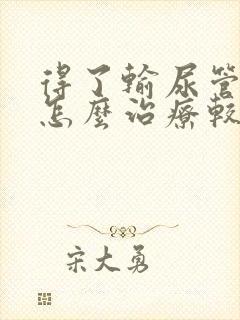 得了輸尿管
怎麼治療較
宋大勇